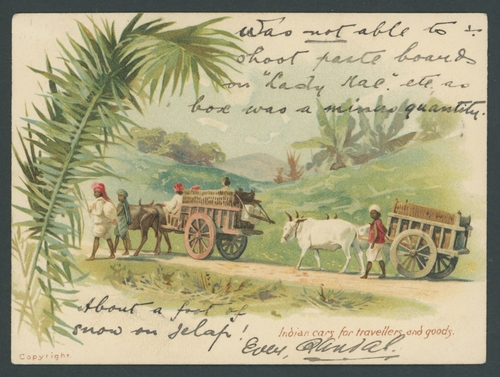 Was not able to :-
shoot paste boards
on "Lady Mac" etc as
box was a minus quantity.
About a foot of
snow on Jelap!
Indian cars for travellers and goods.
Ever,
Copyright.